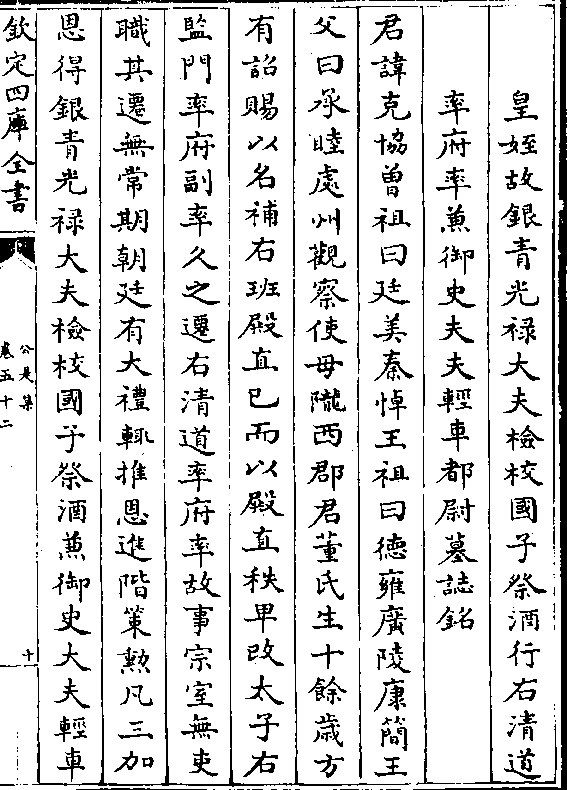 皇姪故銀青光禄大夫檢校國子祭酒行右清道
率府率兼御史夫夫輕車都尉墓誌銘
君諱克協曾祖曰廷美秦悼王祖曰德雍廣陵康簡王
父曰承睦處州觀察使母隴西郡君董氏生十餘歳方
有詔賜以名補右班殿直已而以殿直秩卑改太子右
監門率府副率久之遷右清道率府率故事宗室無吏
職其遷無常期朝廷有大禮輒推恩進階策勲凡三加
恩得銀青光禄大夫檢校國子祭酒兼御史大夫輕車
欽定四庫全書
公是集
卷五十二
十